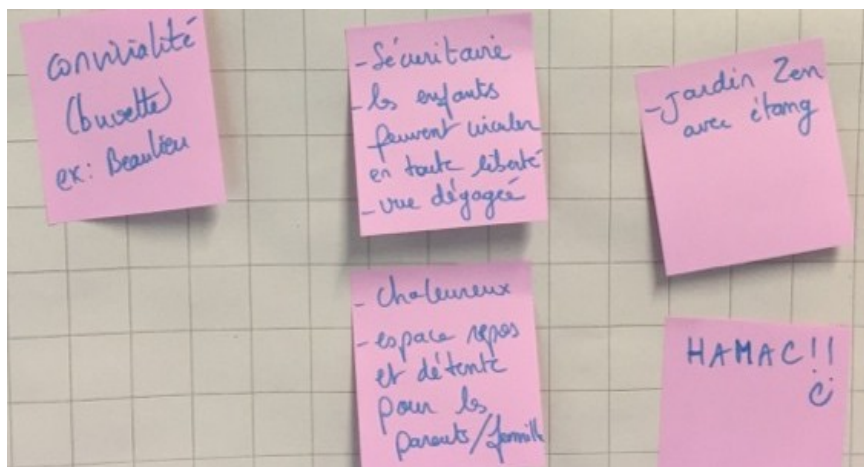 convivialité
(buvette)
ex: Beaulieu
- Sécuritaire
- les enfants
peuvent circuler
en toute liberté
- vue dégagée
- Jardin Zen
avec étang
- Chaleureux
- espace repos
et détente
pour les
parents/famille
HAMAC!!